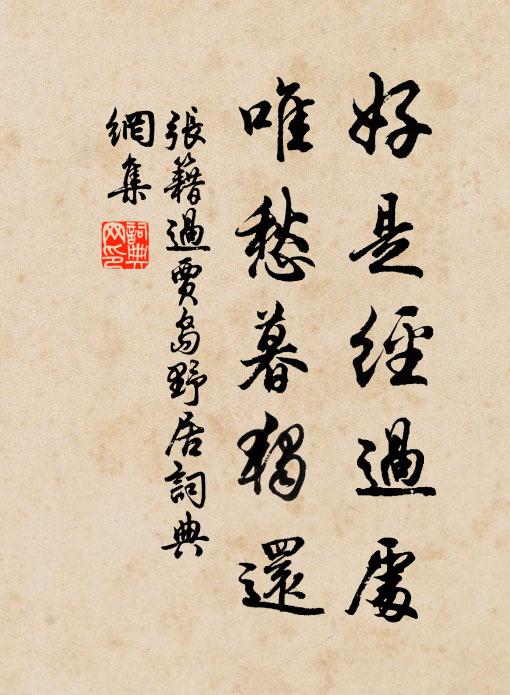 好是經過處
唯愁暮獨還
張籍過賈島野居詞典
網集
詞典
网印